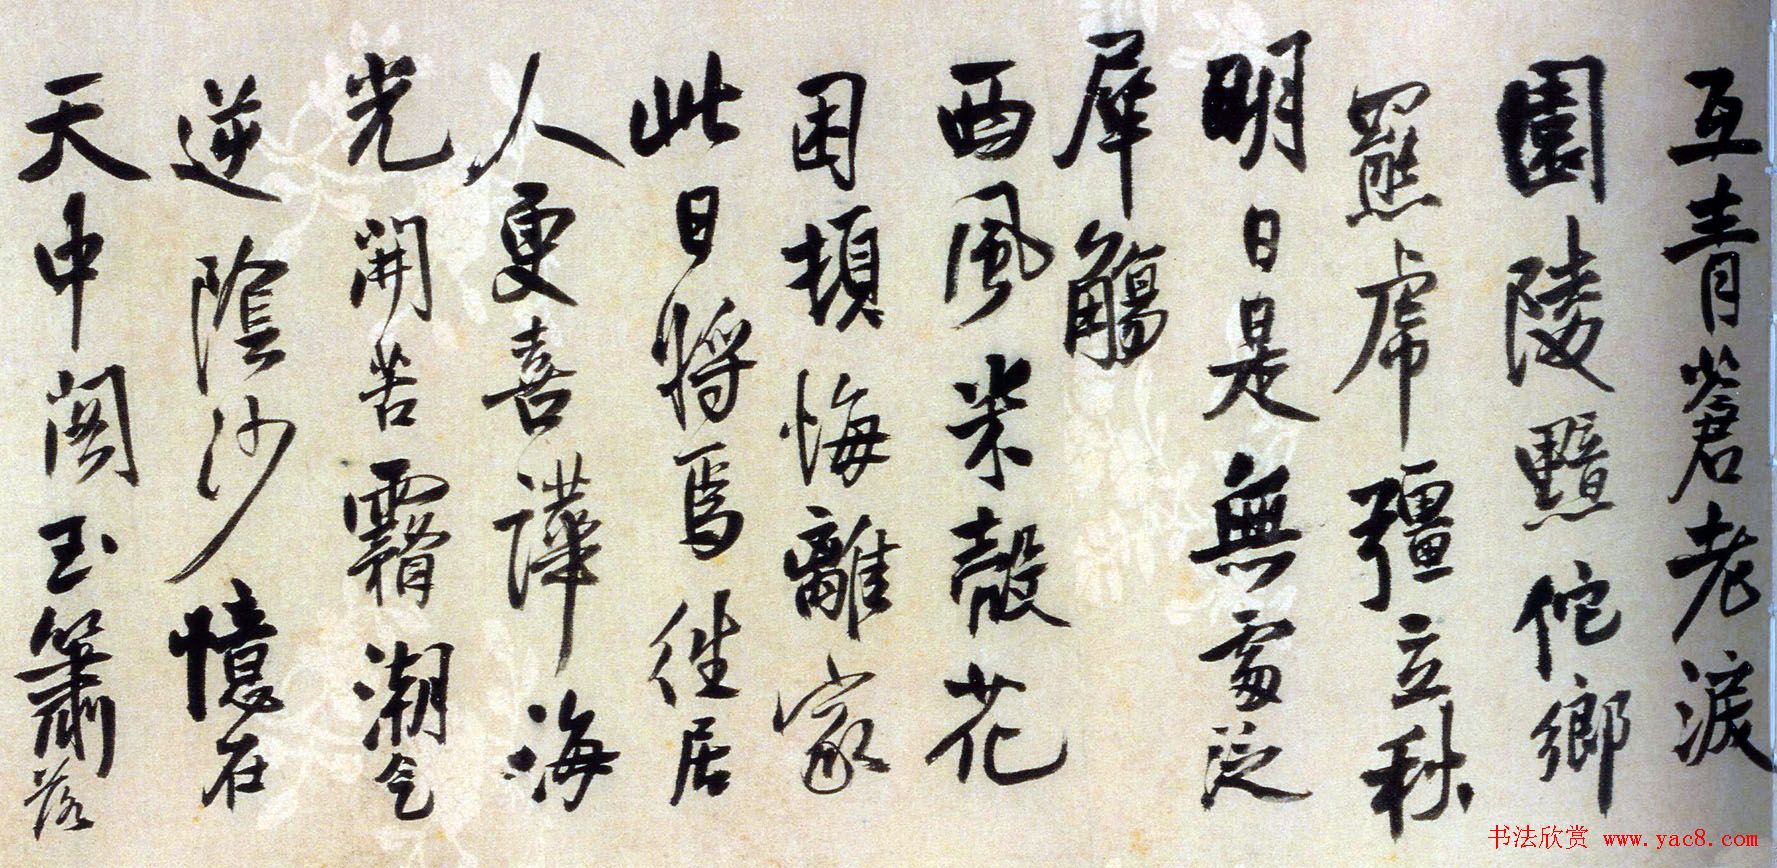 互青蒼老淚
園陵黯佗鄉
羆虎彊立秋
明日是無處泛
犀觴
西風米殼花
困頓悔離家
此日將焉往居
人更喜譁海
光開苦霧潮氣
逆陰沙憶在
天中閣玉簫落
书法欣赏 www.yac8.com